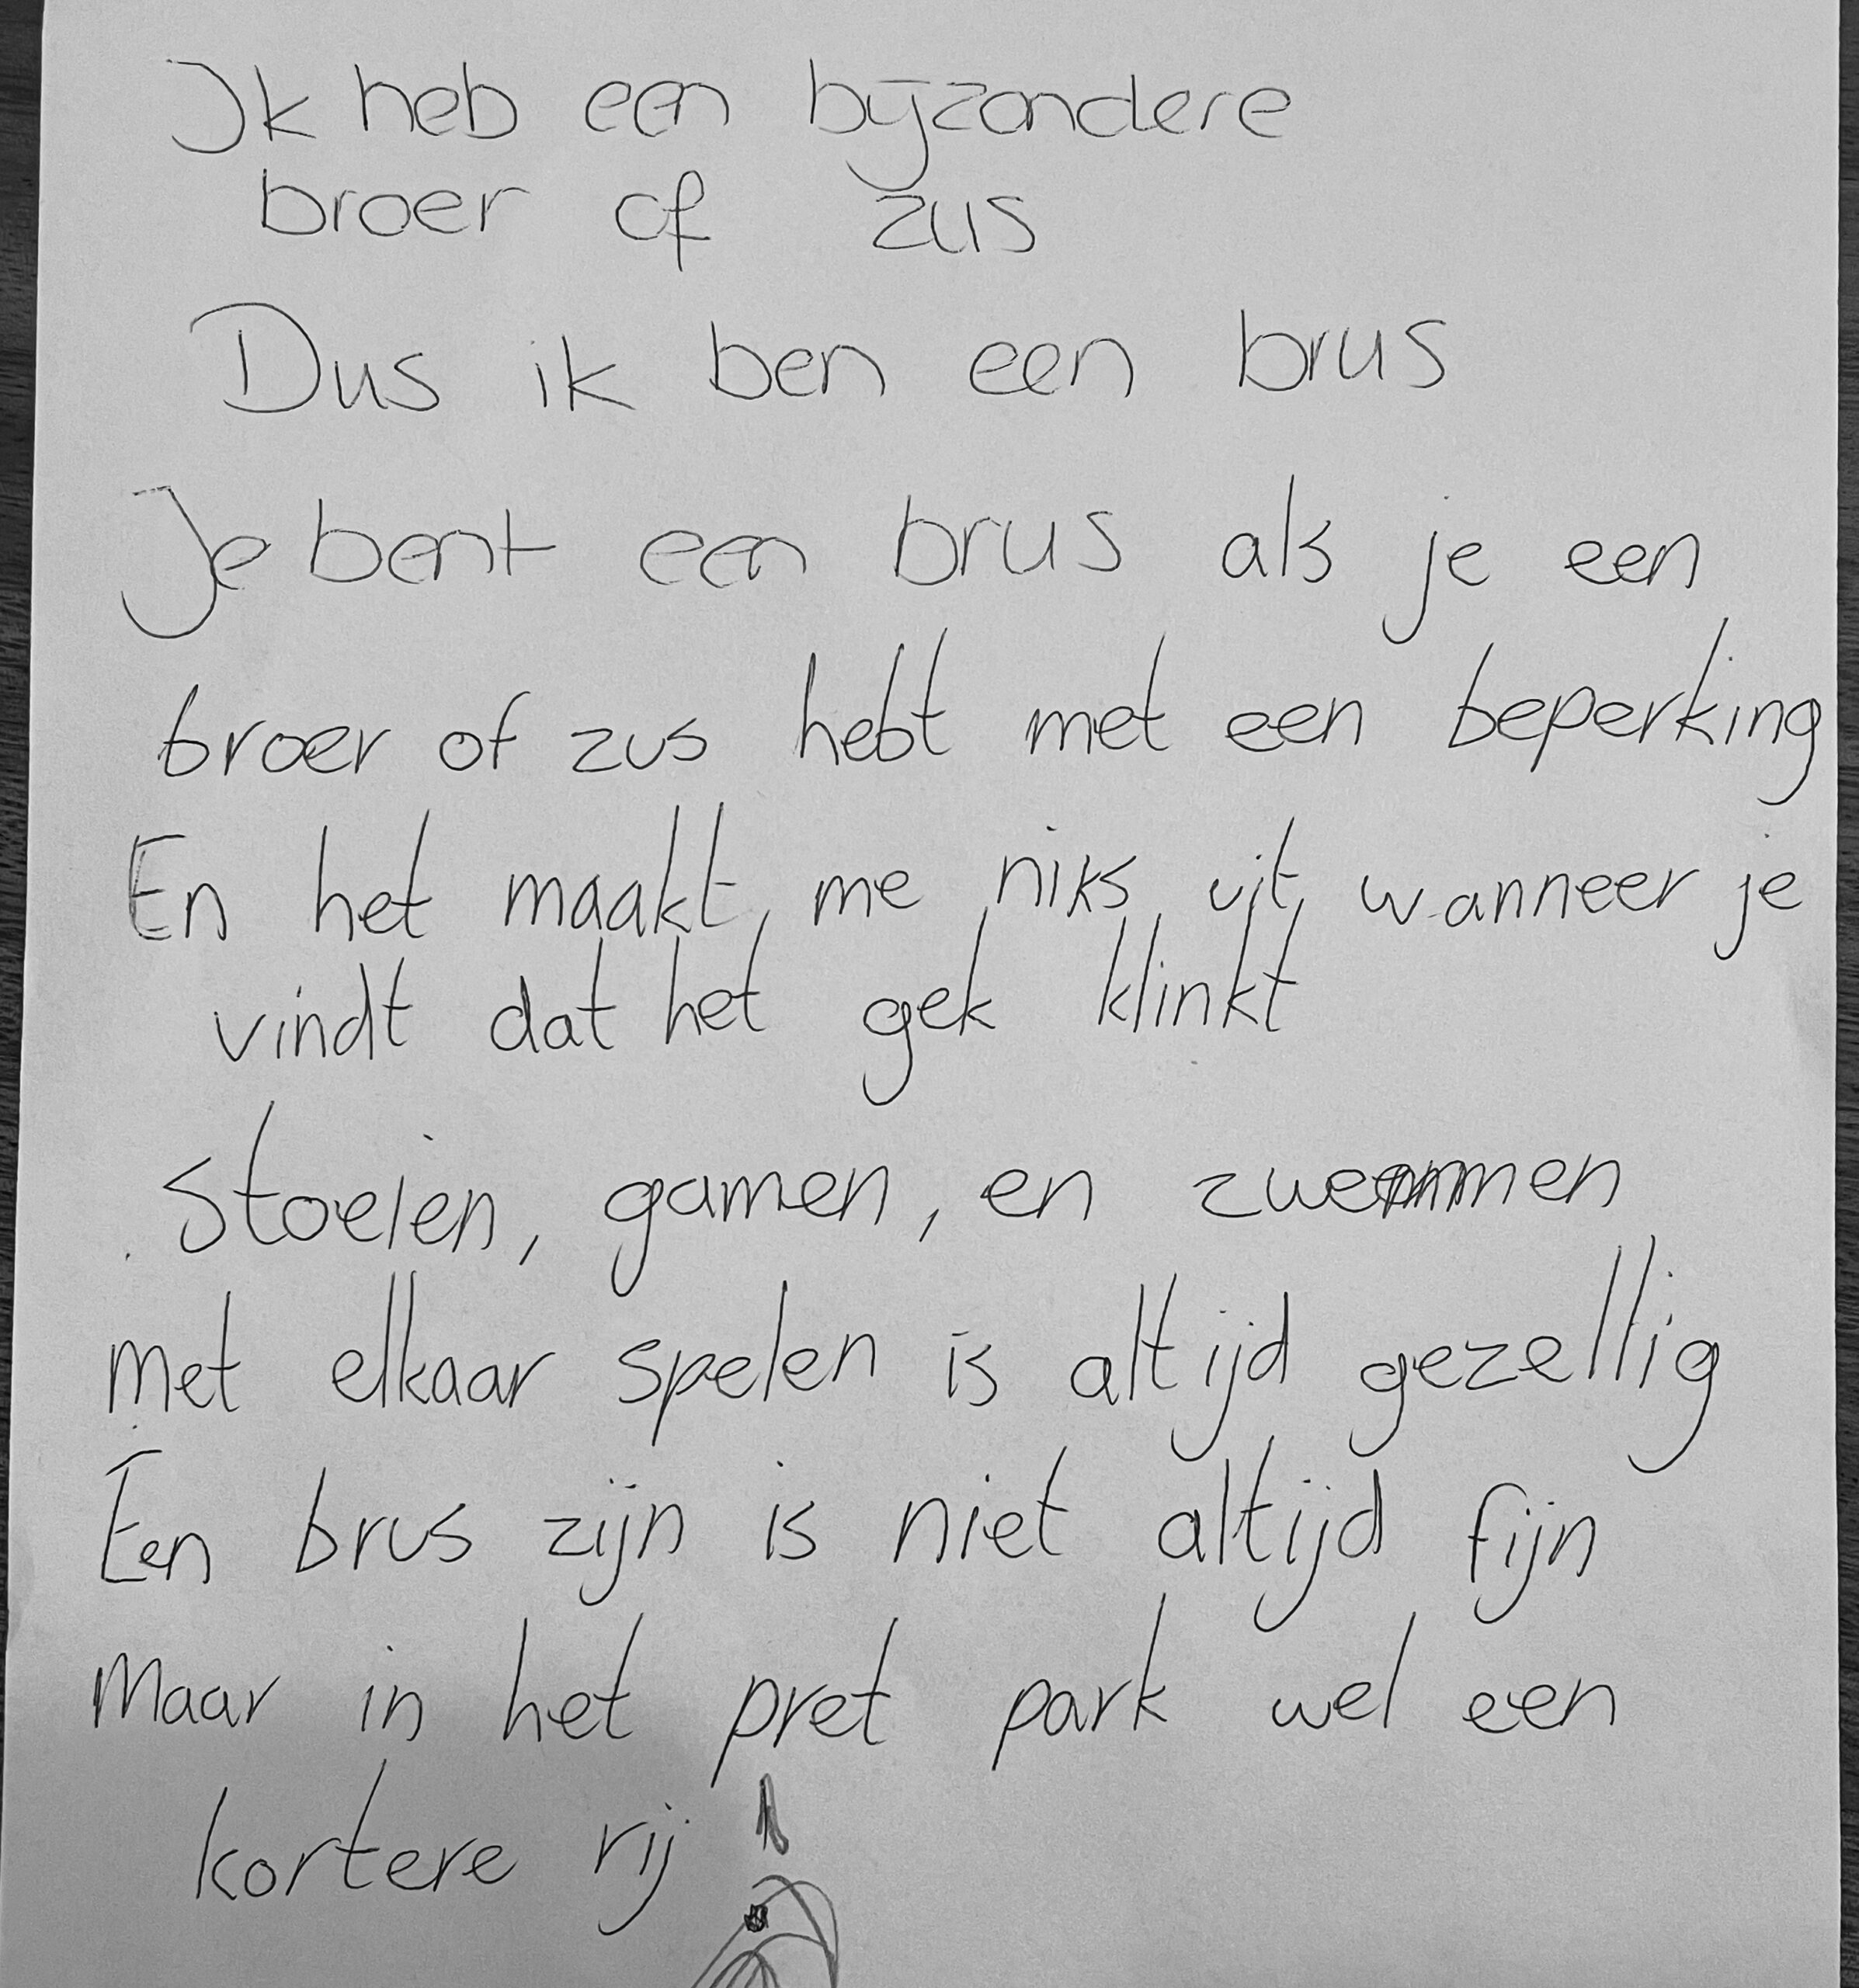 Ik heb een bijzondere
broer of zus
Dus ik ben een brus
Je bent een brus als je een
broer of zus hebt met een beperking
En het maakt me niks uit wanneer je
vindt dat het gek klinkt
Stoeien, gamen, en zwemmen
met elkaar spelen is altijd gezellig
Een brus zijn is niet altijd fijn
Maar in het pret park wel een
kortere rij